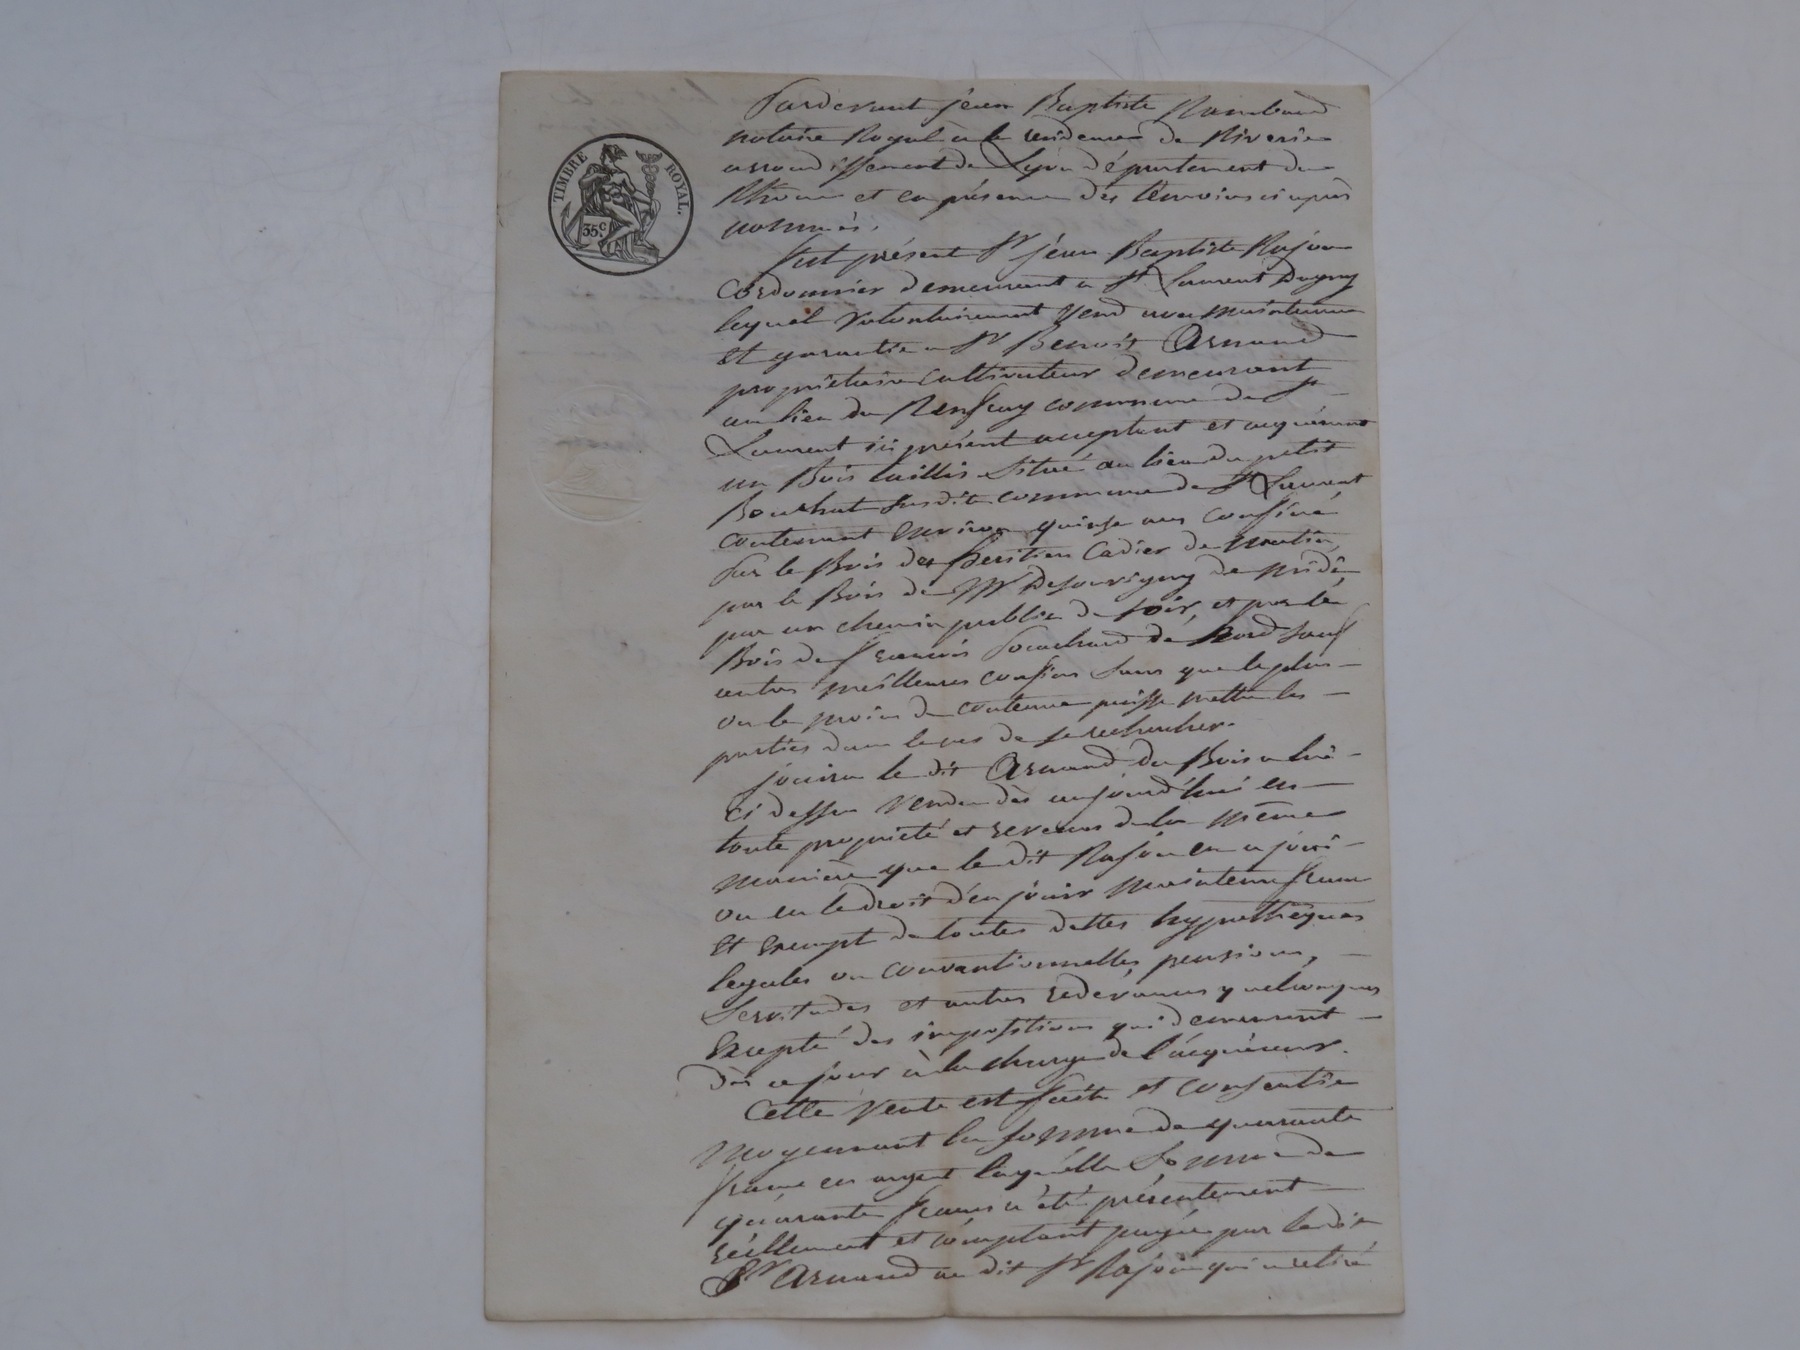 TIMBRE ROYAL.
35c
Pardevant jean Baptiste Rambaud
notaire Royal à la residence de Riverie
arrondissement de Lyon département du
Rhone et en présence des témoins ci après
nommés.
fut présent Sr jean Baptiste Rajon
Cordonnier demeurant a St Laurent Dagny
lequel volontairement vend avec maintenue
et garantie a Sr Benoit Arnaud
propriétaire cultivateur demeurant
au lieu du commune de St
Laurent ici présent acceptant et acquérant
un Bois taillis situé au lieu du petit
Bouchat susdite commune de St Laurent
contenant environ quinze ares confiné
par le Bois des heritiers Cadier de matin,
par le Bois de Mr Dejouvigny de midi,
par un chemin public de soir, et par le
Bois de francois de nord sauf
autres meilleures confins sans que le plus
ou le moins de contenue puisse mettre les
parties dans le cas de se rechercher.
jouira le dit Arnaud du Bois a lui
ci dessus vendu dès aujourd'hui en
toute propriété et revenus de la même
manière que le dit Rajon en a joui
ou eu le droit d'en jouir maintenu franc
et exempt de toutes dettes hypothèques
legales ou conventionnelles, pensions,
servitudes et autres redevances quelconques
Excepté des impositions qui demeurent
dès ce jour à la charge de l'acquéreur.
Cette vente est faite et consentie
moyennant la somme de quarante
francs en argent laquelle somme de
quarante francs a été présentement
réellement et comptant payée par le dit
Sr Arnaud au dit Sr Rajon qui a retiré